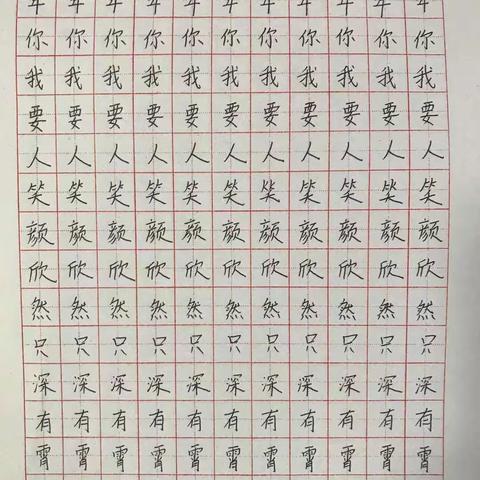 你你你你你你你你你你你
我我我我我我我我我我我
要要要要要要要要要要要
人人人人人人人人人人人
笑笑笑笑笑笑笑笑笑笑笑
颜颜颜颜颜颜颜颜颜颜颜
欣欣欣欣欣欣欣欣欣欣欣
然然然然然然然然然然然
只只只只只只只只只只只
深深深深深深深深深深深
有有有有有有有有有有有
霄霄霄霄霄霄霄霄霄霄霄